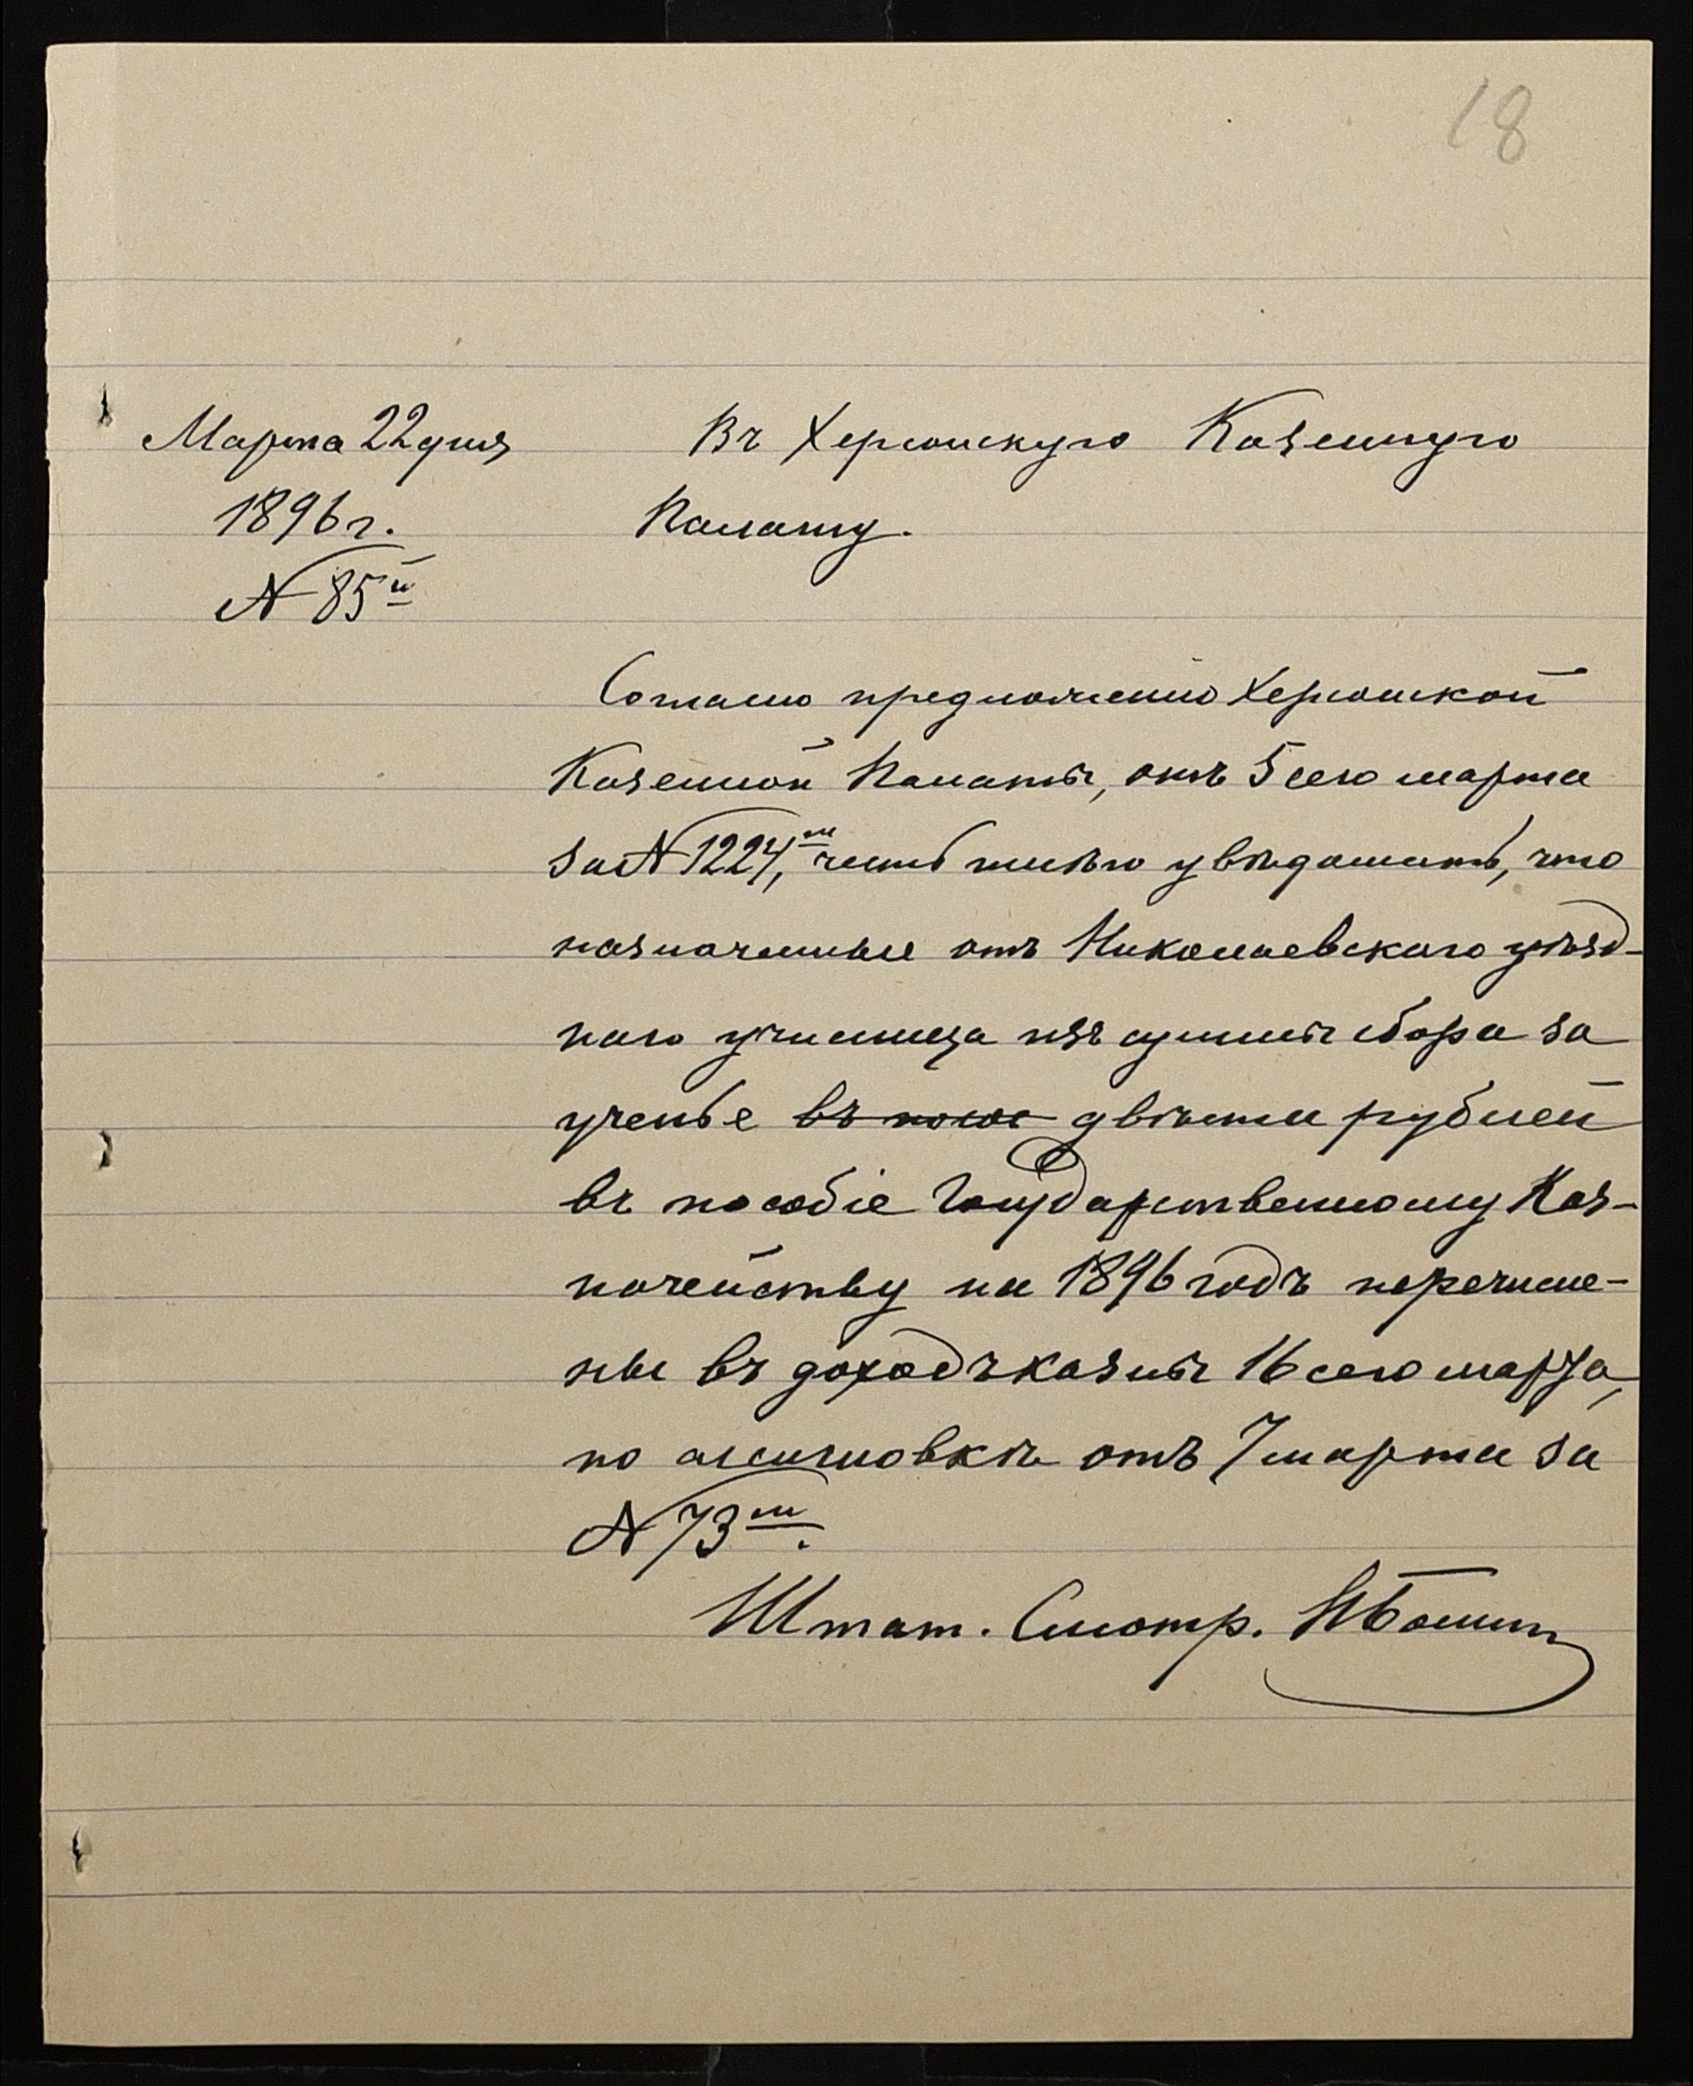 18
Марта 22 дня
1896 г.
№ 85й
Въ Херсонскую Казенную
Палату.
Согласно предложенію Херсонской
Казенной Палаты, отъ 5 сего марта
за № 1224,мъ честь имѣю увѣдомить, что
назначенные отъ Николаевскаго уѣзд-
наго училища изъ суммы сбора за
ученье въ двѣсти рублей
въ пособіе Государственному Каз-
начейству на 1896 годъ перечисле-
ны въ доходъ казны 16 сего марта,
по ассигновкѣ отъ 7 марта за
№ 73мъ.
Штат. Смотр.